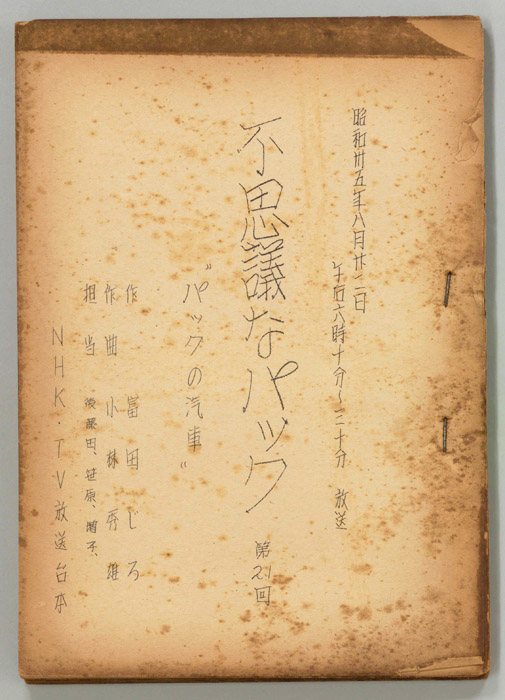 昭和卅五年八月廿二日
午后六時十分~三十分 放送
不思議なパック 第21回
“パックの汽車”
作 富田じろ
作曲 小林秀雄
担当 後藤田、笹原、
NHK・TV放送台本